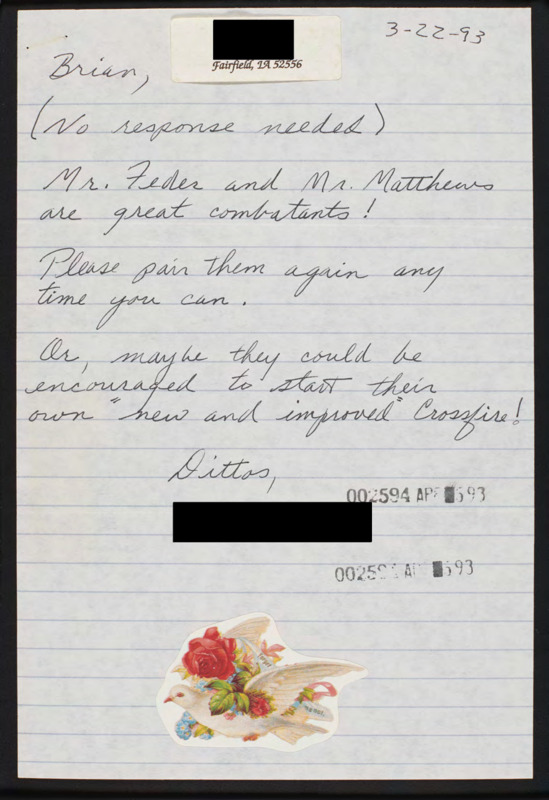 3-22-93
Fairfield, IA 52556
Brian,
(No response needed)
Mr. Feder and Mr. Matthews
are great combatants!
Please pair them again any
time you can.
Or, maybe they could be
encouraged to start their
own "new and improved" Crossfire!
Dittos,
002594 APR 593
002594 593